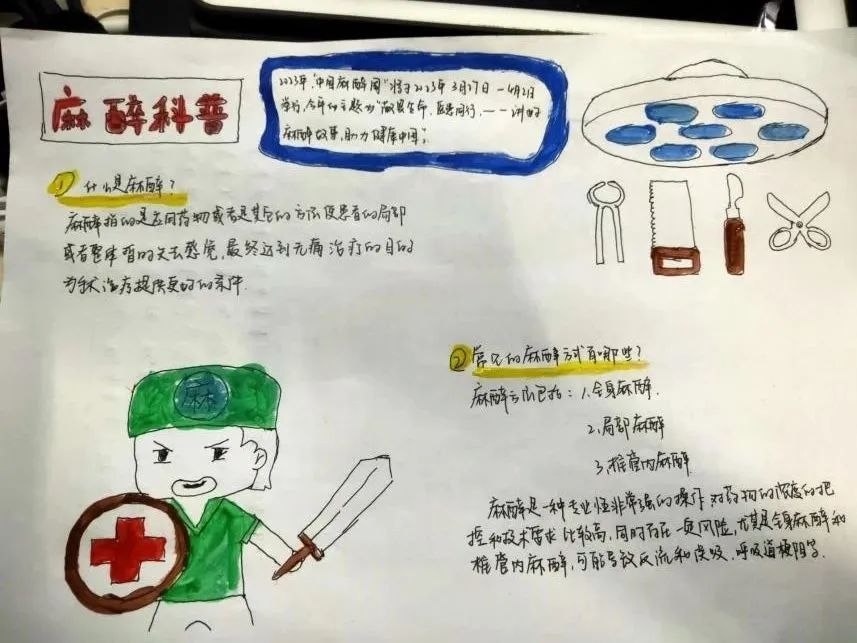 麻醉科普
2023年"中国麻醉周"将于2023年3月27日—4月2日
举行,今年的主题为"敬畏生命,医患同行,——讲好
麻醉故事,助力健康中国"。
① 什么是麻醉?
麻醉指的是应用药物或者是其它的方法使患者的局部
或者整体暂时失去感觉,最终达到无痛治疗的目的
为手术治疗提供更好的条件.
麻
② 常见的麻醉方式有哪些?
麻醉方法包括:1.全身麻醉.
2.局部麻醉
3.椎管内麻醉
麻醉是一种专业性非常强的操作,对药物的浓度的把
控和技术要求比较高,同时存在一定风险,尤其是全身麻醉和
椎管内麻醉,可能导致反流和误吸、呼吸道梗阻等.